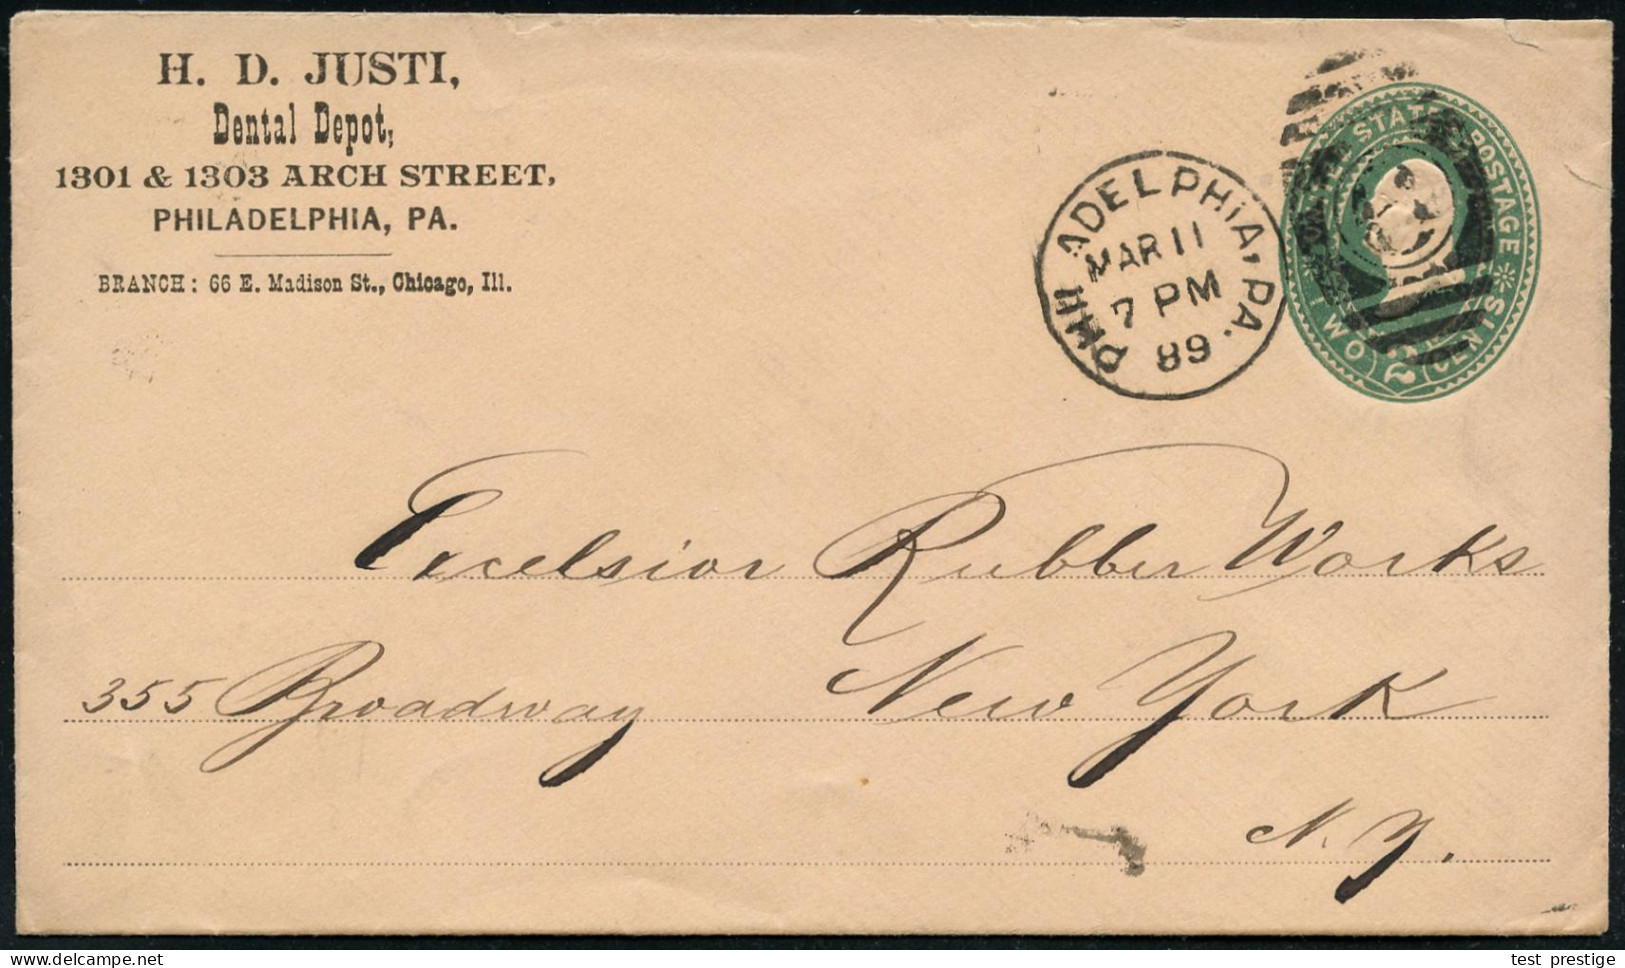 H. D. JUSTI,
Dental Depot,
1301 & 1303 ARCH STREET,
PHILADELPHIA, PA.
BRANCH: 66 E. Madison St., Chicago, Ill.
PHILADELPHIA, PA.
MAR 11
7 PM
89
UNITED STATES POSTAGE
TWO 2 CENTS
Excelsior Rubber Works
355 Broadway New York
N. Y.
test prestige